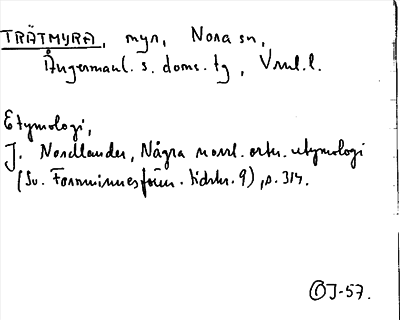 TRÄTMYRA, myr, Nora sn,
Ångermanl. s. doms. tg, Vnrl.l.
Etymologi,
J. Nordlander, Några norrl. ortn. etymologi
(Sv. Fornminnesfören. tidskr. 9), s. 314.
OJ-57.